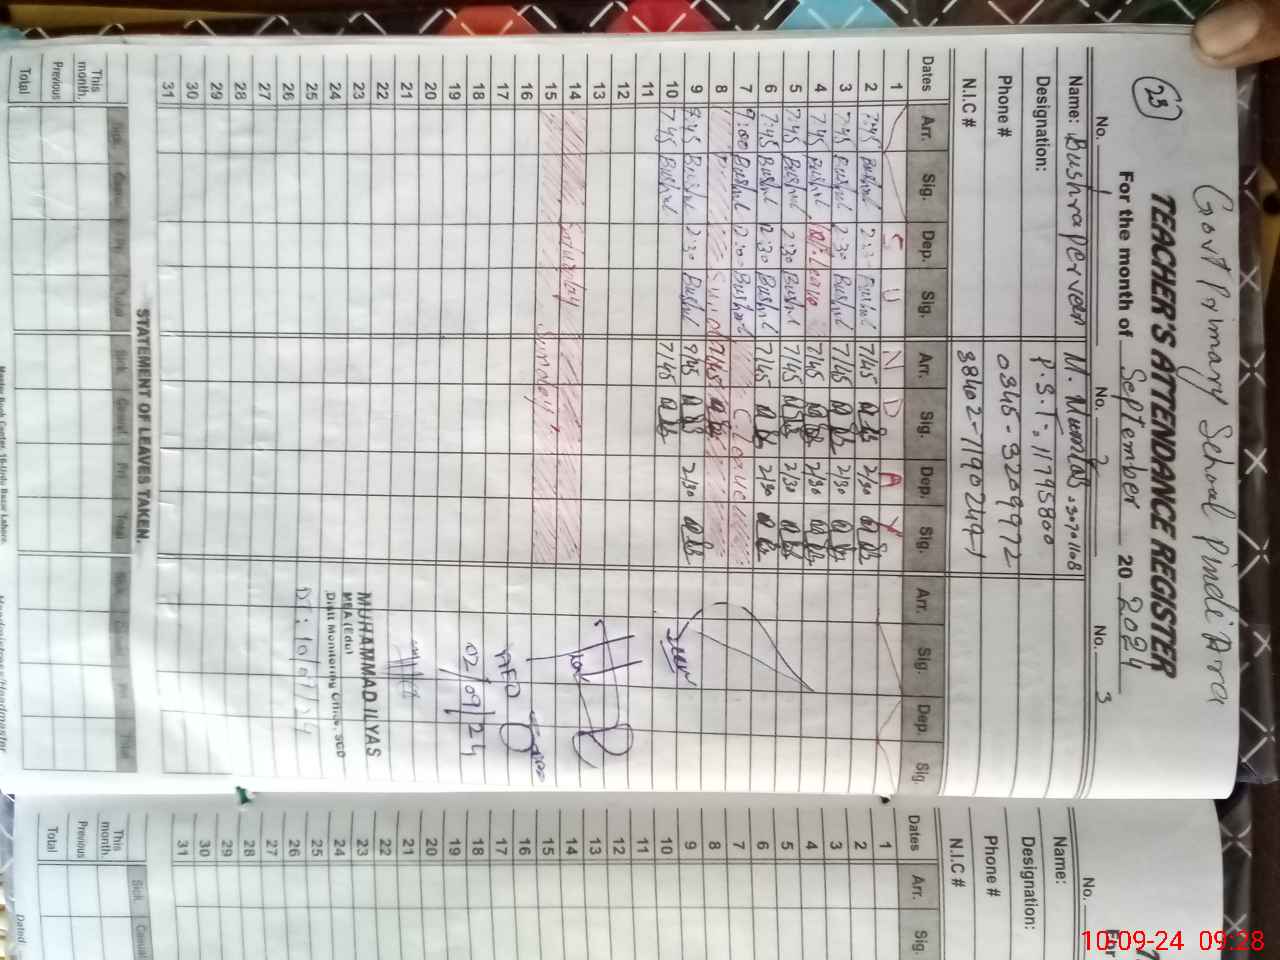 Govt Primary School Pindi
23
TEACHER'S ATTENDANCE REGISTER
For the month of September 20 2024
No. 1 No. 2 No. 3
Name: Bushra Perveen M. Mumtaz
Designation: P.S.T.
Phone # 0345-9209972
N.I.C # 38402-1190249-1
Dates Arr. Sig. Dep. Sig. Arr. Sig. Dep. Sig. Arr. Sig. Dep. Sig.
1 S U N D A Y
2 7:45 Bushra 2:30 Bushra 7/45 2/30
3 7:45 Bushra 2:30 Bushra 7/45 2/30
4 7:45 Bushra Leave 7/45 2/30
5 7:45 Bushra 2:30 Bushra 7/45 2/30
6 7:45 Bushra 12:30 Bushra 7/45 2/30
7 9:00 Bushra 12:30 Bushra C. Leave
8 Sunday 7/45
9 8:45 Bushra 2:30 Bushra 9/45 2/30
10 7:45 Bushra 7/45
11
12
13
14 Saturday
15 Sunday
16
17
18
19
20
21
22
23
24
25
26
27
28
29
30
31
Seen
AEO
02/09/24
MUHAMMAD ILYAS
MEA (Edu)
Distt Monitoring Office, SGD
STATEMENT OF LEAVES TAKEN.
This month.
Previous
Total
Master Book Center, 16-Urdu Bazar Lahore.
Headmistress/Headmaster
No.
For
Name:
Designation:
Phone #
N.I.C #
Dates Arr. Sig.
1
2
3
4
5
6
7
8
9
10
11
12
13
14
15
16
17
18
19
20
21
22
23
24
25
26
27
28
29
30
31
Sick Casual
This month.
Previous
Total
Dated
10-09-24 09:28